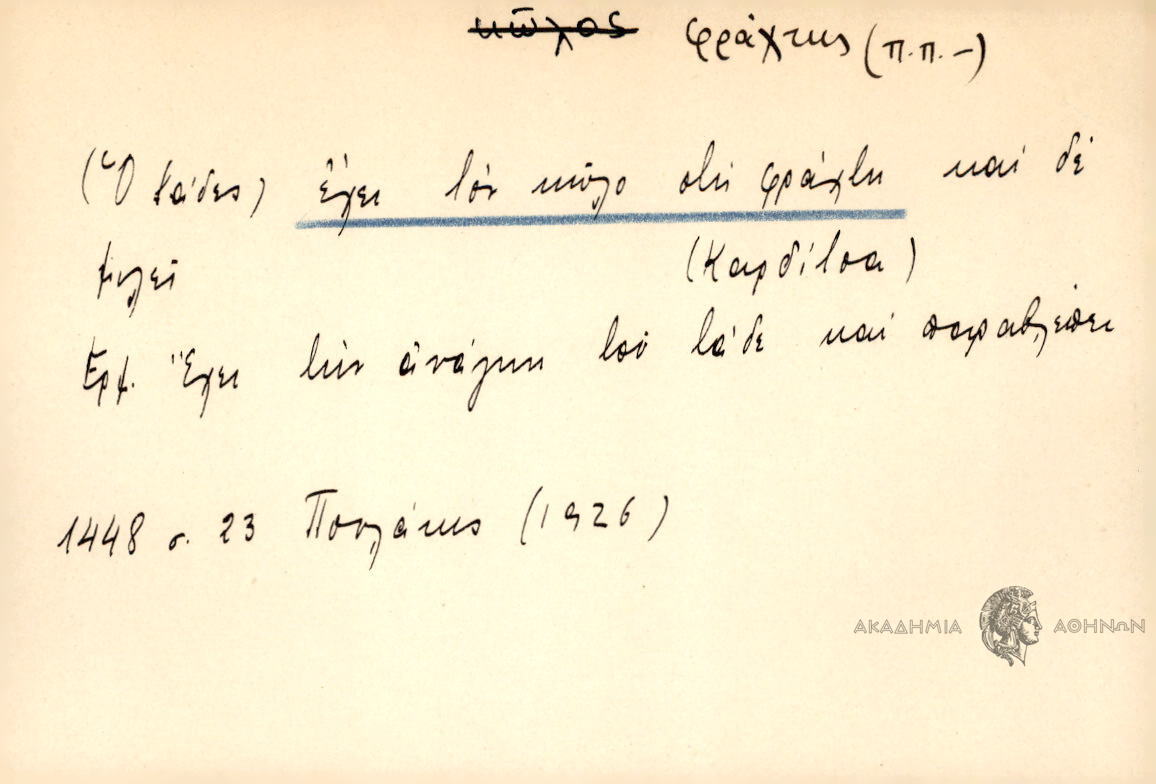 κῶλος φράχτης (π.π.-)
(Ὁ τάδες) ἔχει τόν κῶλο στή φράχτη καί δέ
μιλεῖ (Καρδίτσα)
Ἑρμ. Ἔχει τήν ἀνάγκη τοῦ τάδε καί παραβλέπει
1448 σ. 23 Πουλάκης (1926)
ΑΚΑΔΗΜΙΑ ΑΘΗΝΩΝ